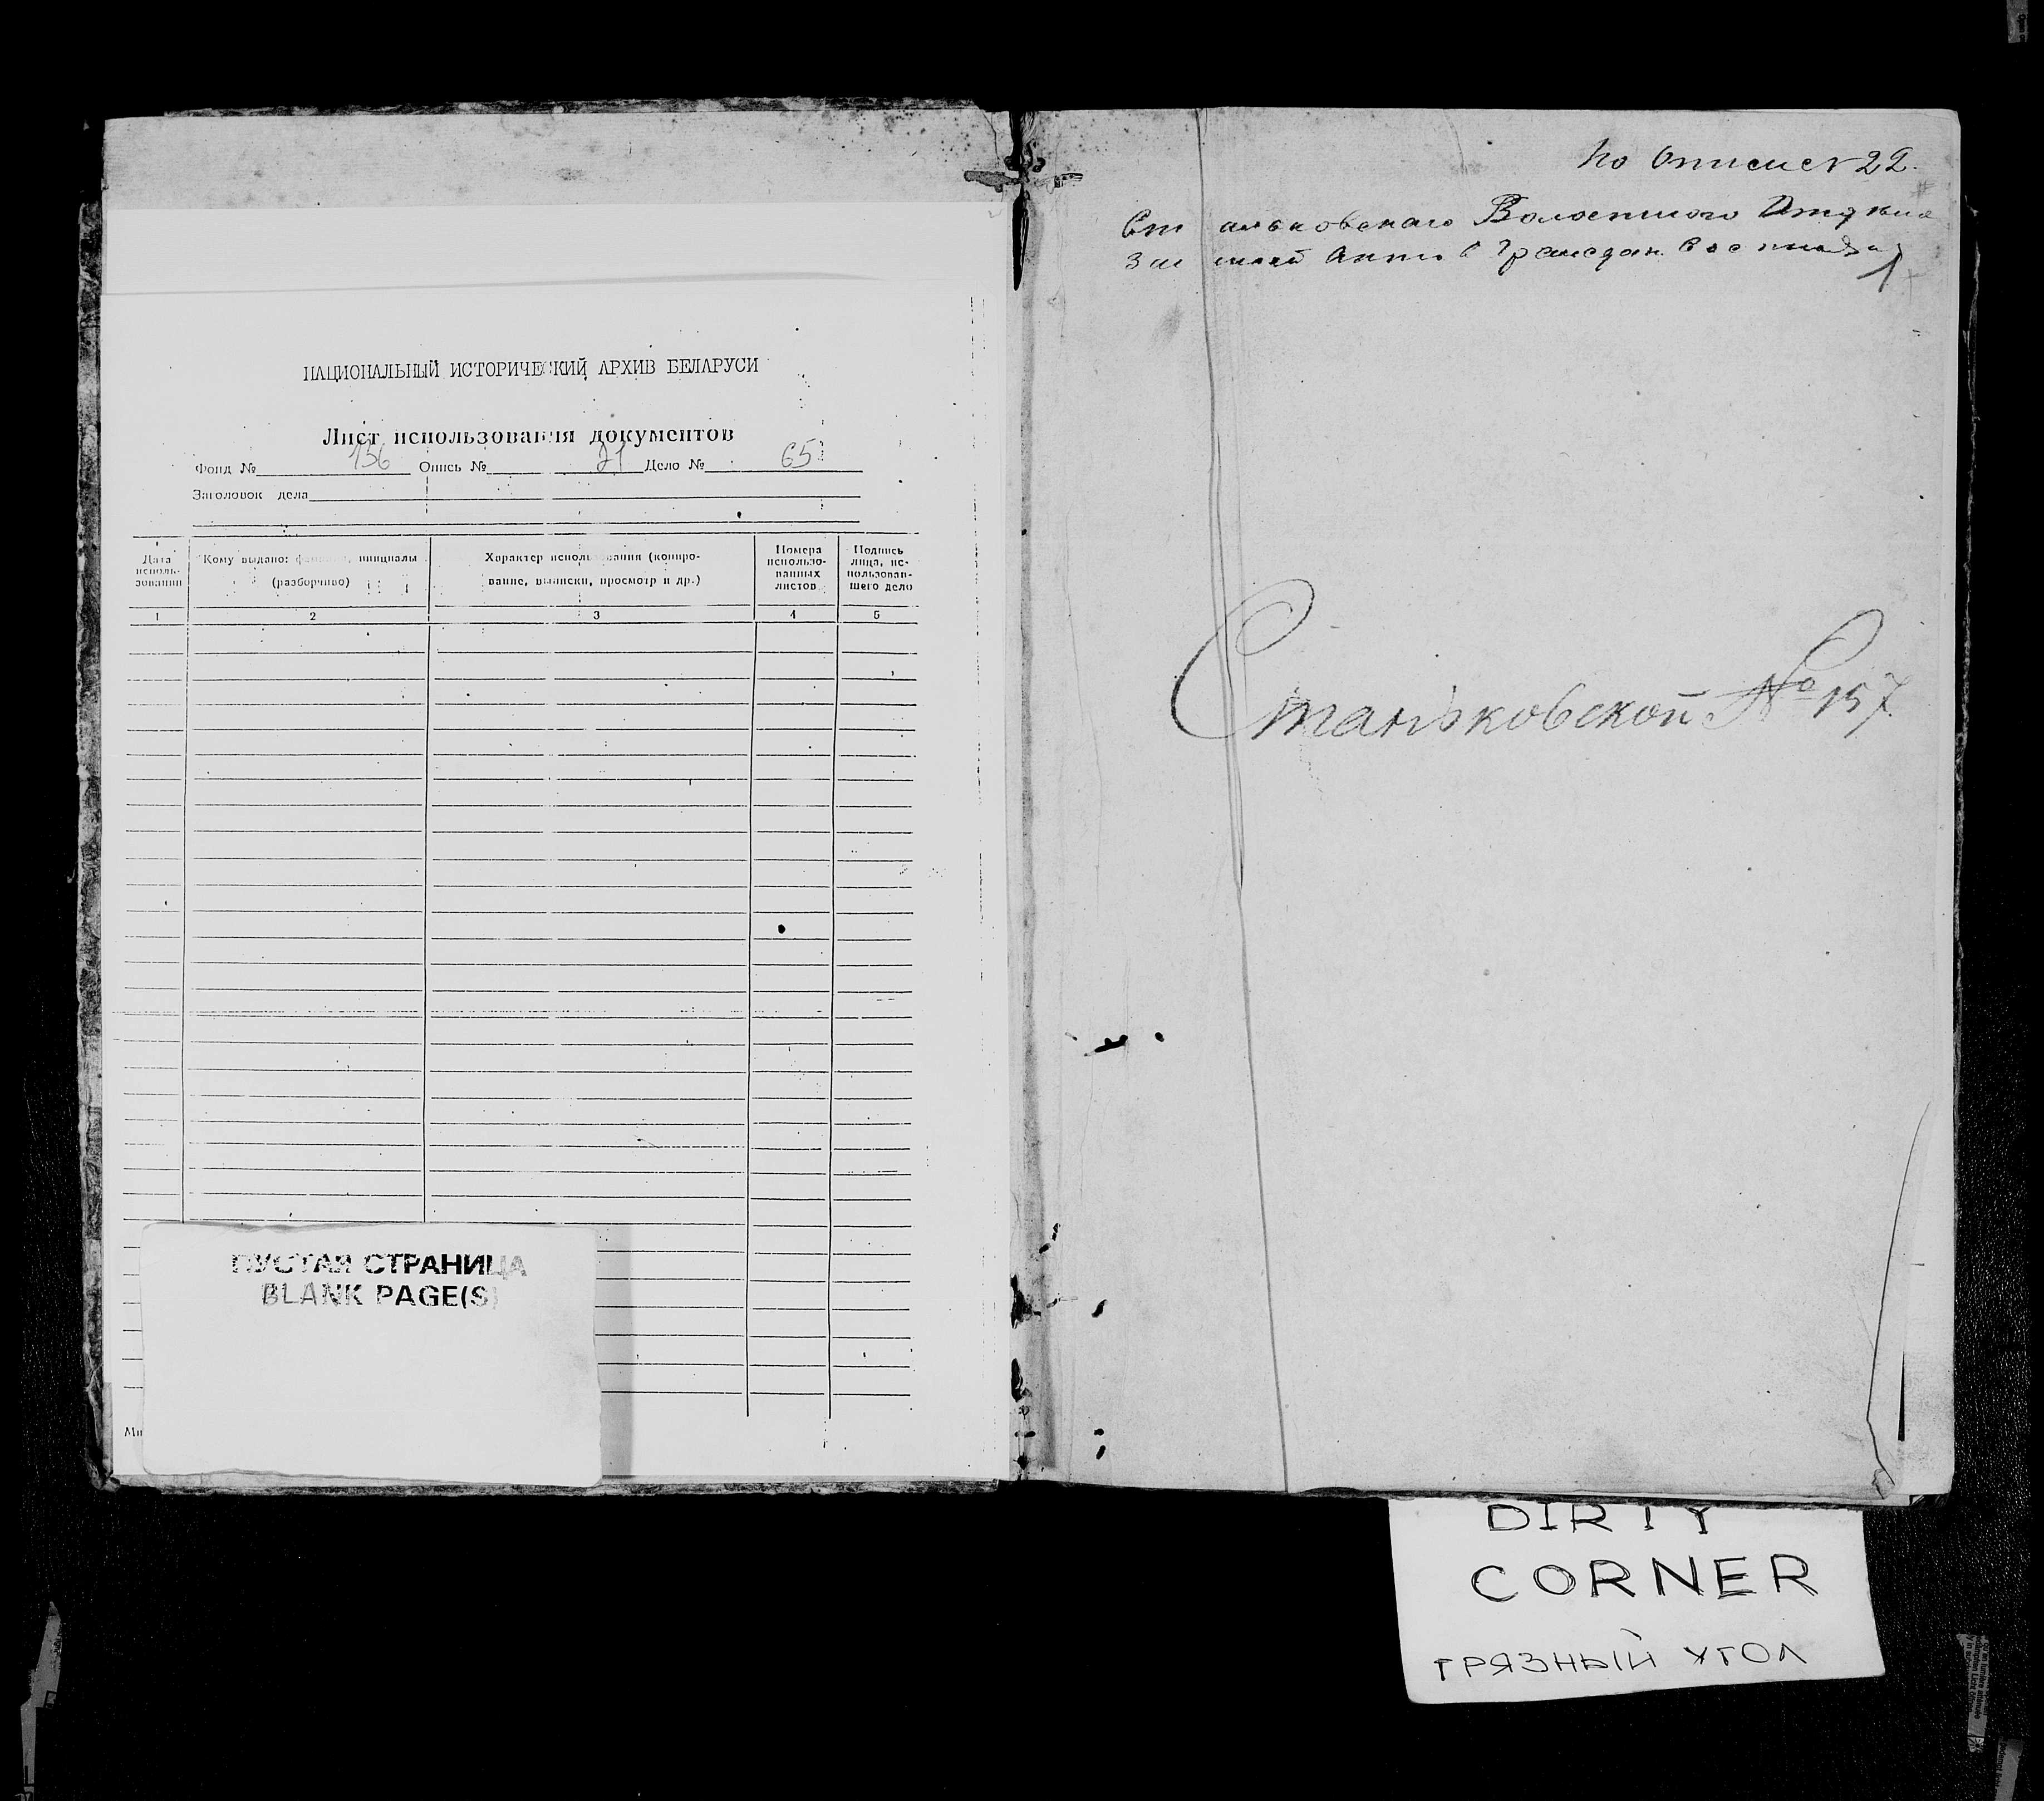 НАЦИОНАЛЬНЫЙ ИСТОРИЧЕСКИЙ АРХИВ БЕЛАРУСИ
Лист использования документов
Фонд № 136 Опись № 21 Дело № 65
Заголовок дела
Дата использования
Кому выдано: фамилия, инициалы (разборчиво)
Характер использования (копирование, выписки, просмотр и др.)
Номера использованных листов
Подпись лица, использовавшего дело
1 2 3 4 5
ПУСТАЯ СТРАНИЦА
BLANK PAGE(S)
по Описи № 22.
Станьковскаго Волостного
Граждан
1
Станьковской № 157.
DIRTY
CORNER
ГРЯЗНЫЙ УГОЛ